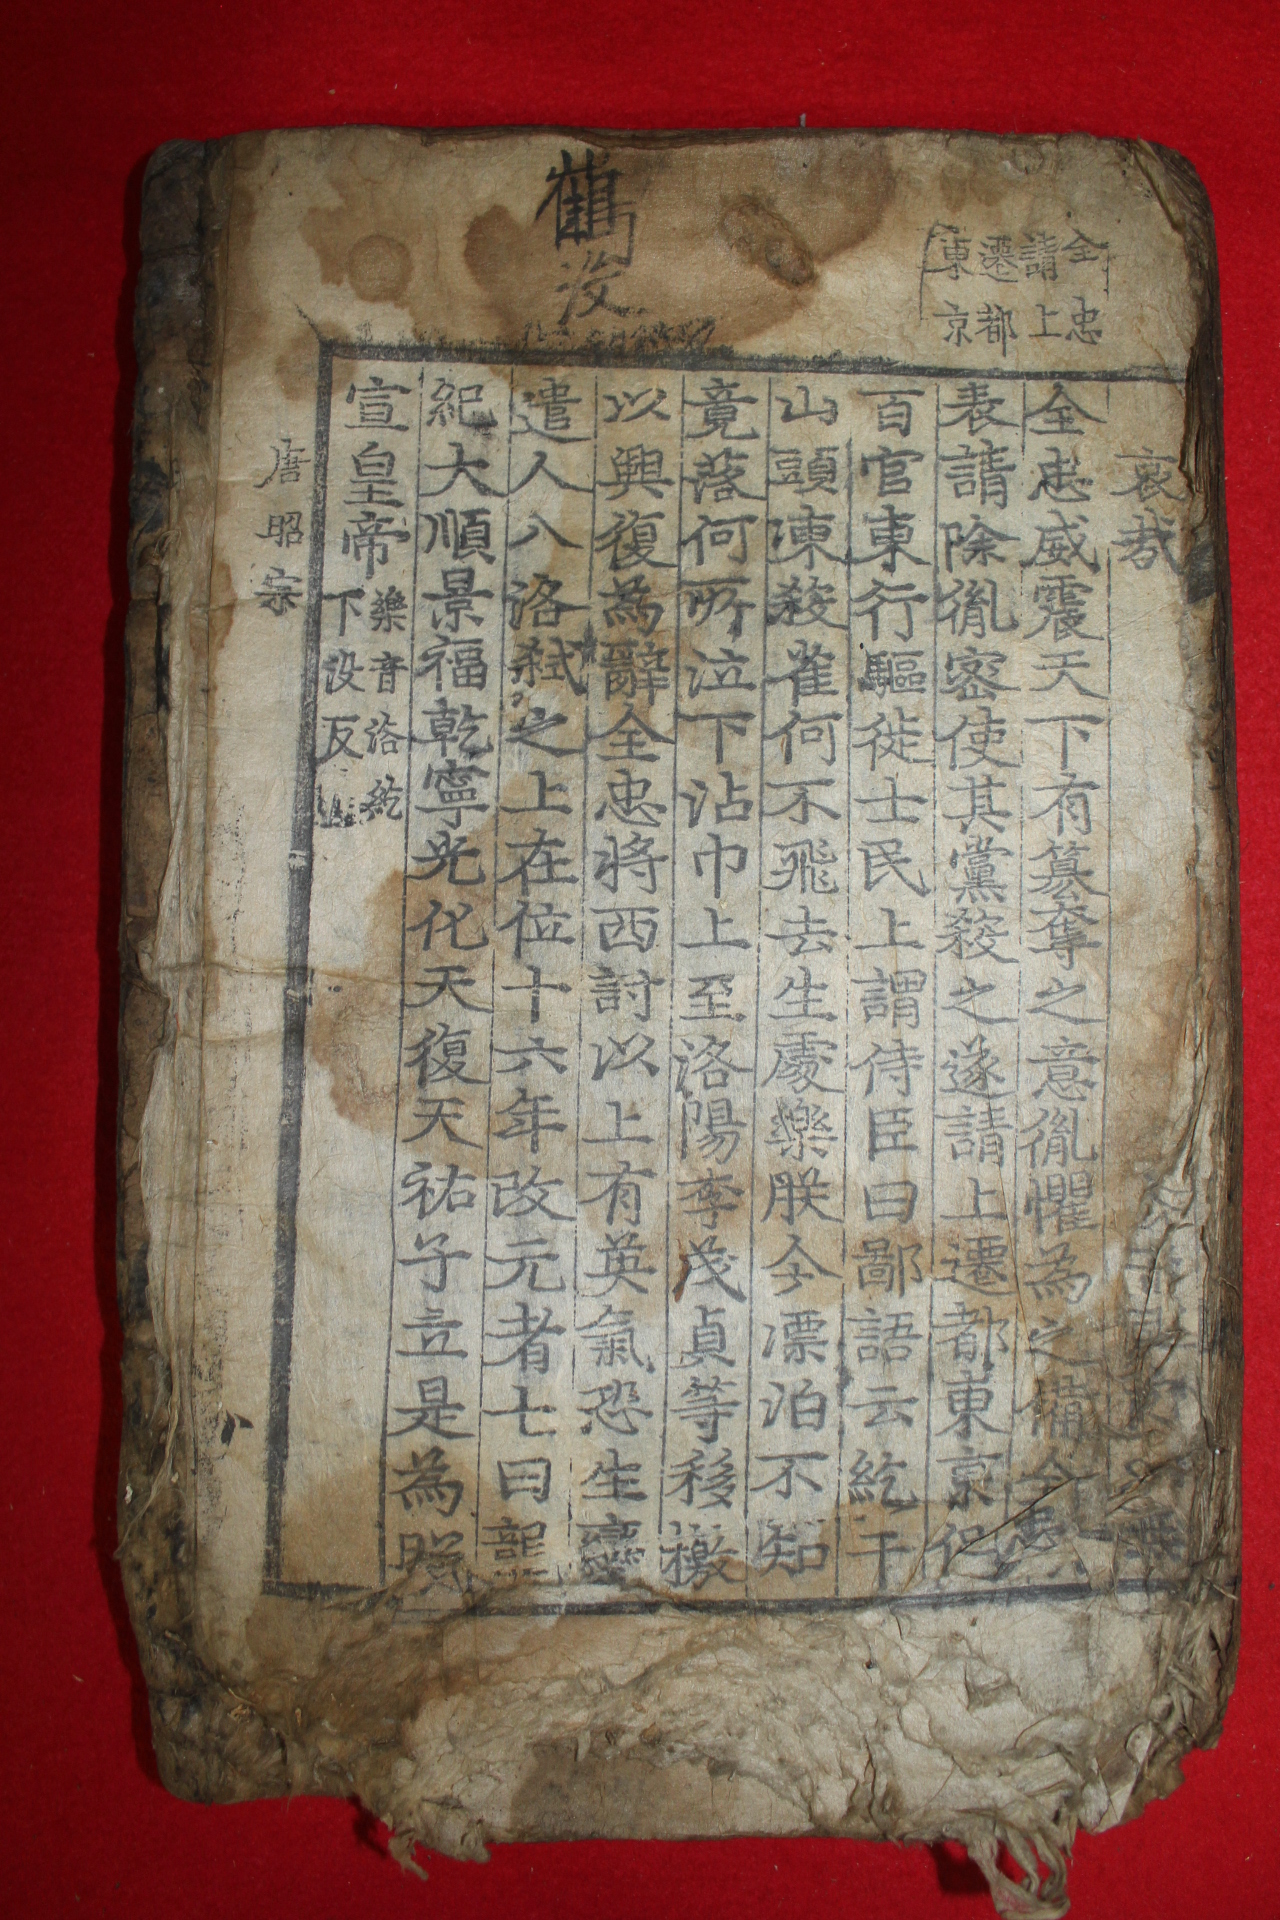 全忠
請上
遷都
東京
鶴
汝
哀哉
全忠威震天下有簒奪之意胤懼為之備全忠
表請除胤密使其黨殺之遂請上遷都東京促
百官東行驅徙士民上謂侍臣曰鄙語云紇干
山頭凍殺雀何不飛去生處樂朕今漂泊不知
竟落何所泣下沾巾上至洛陽李茂貞等移檄
以興復為辭全忠將西討以上有英氣恐生變
遣人入洛弑之上在位十六年改元者七曰龍
紀大順景福乾寧光化天復天祐子立是為昭
宣皇帝樂音洛紇
下沒反
唐昭宗